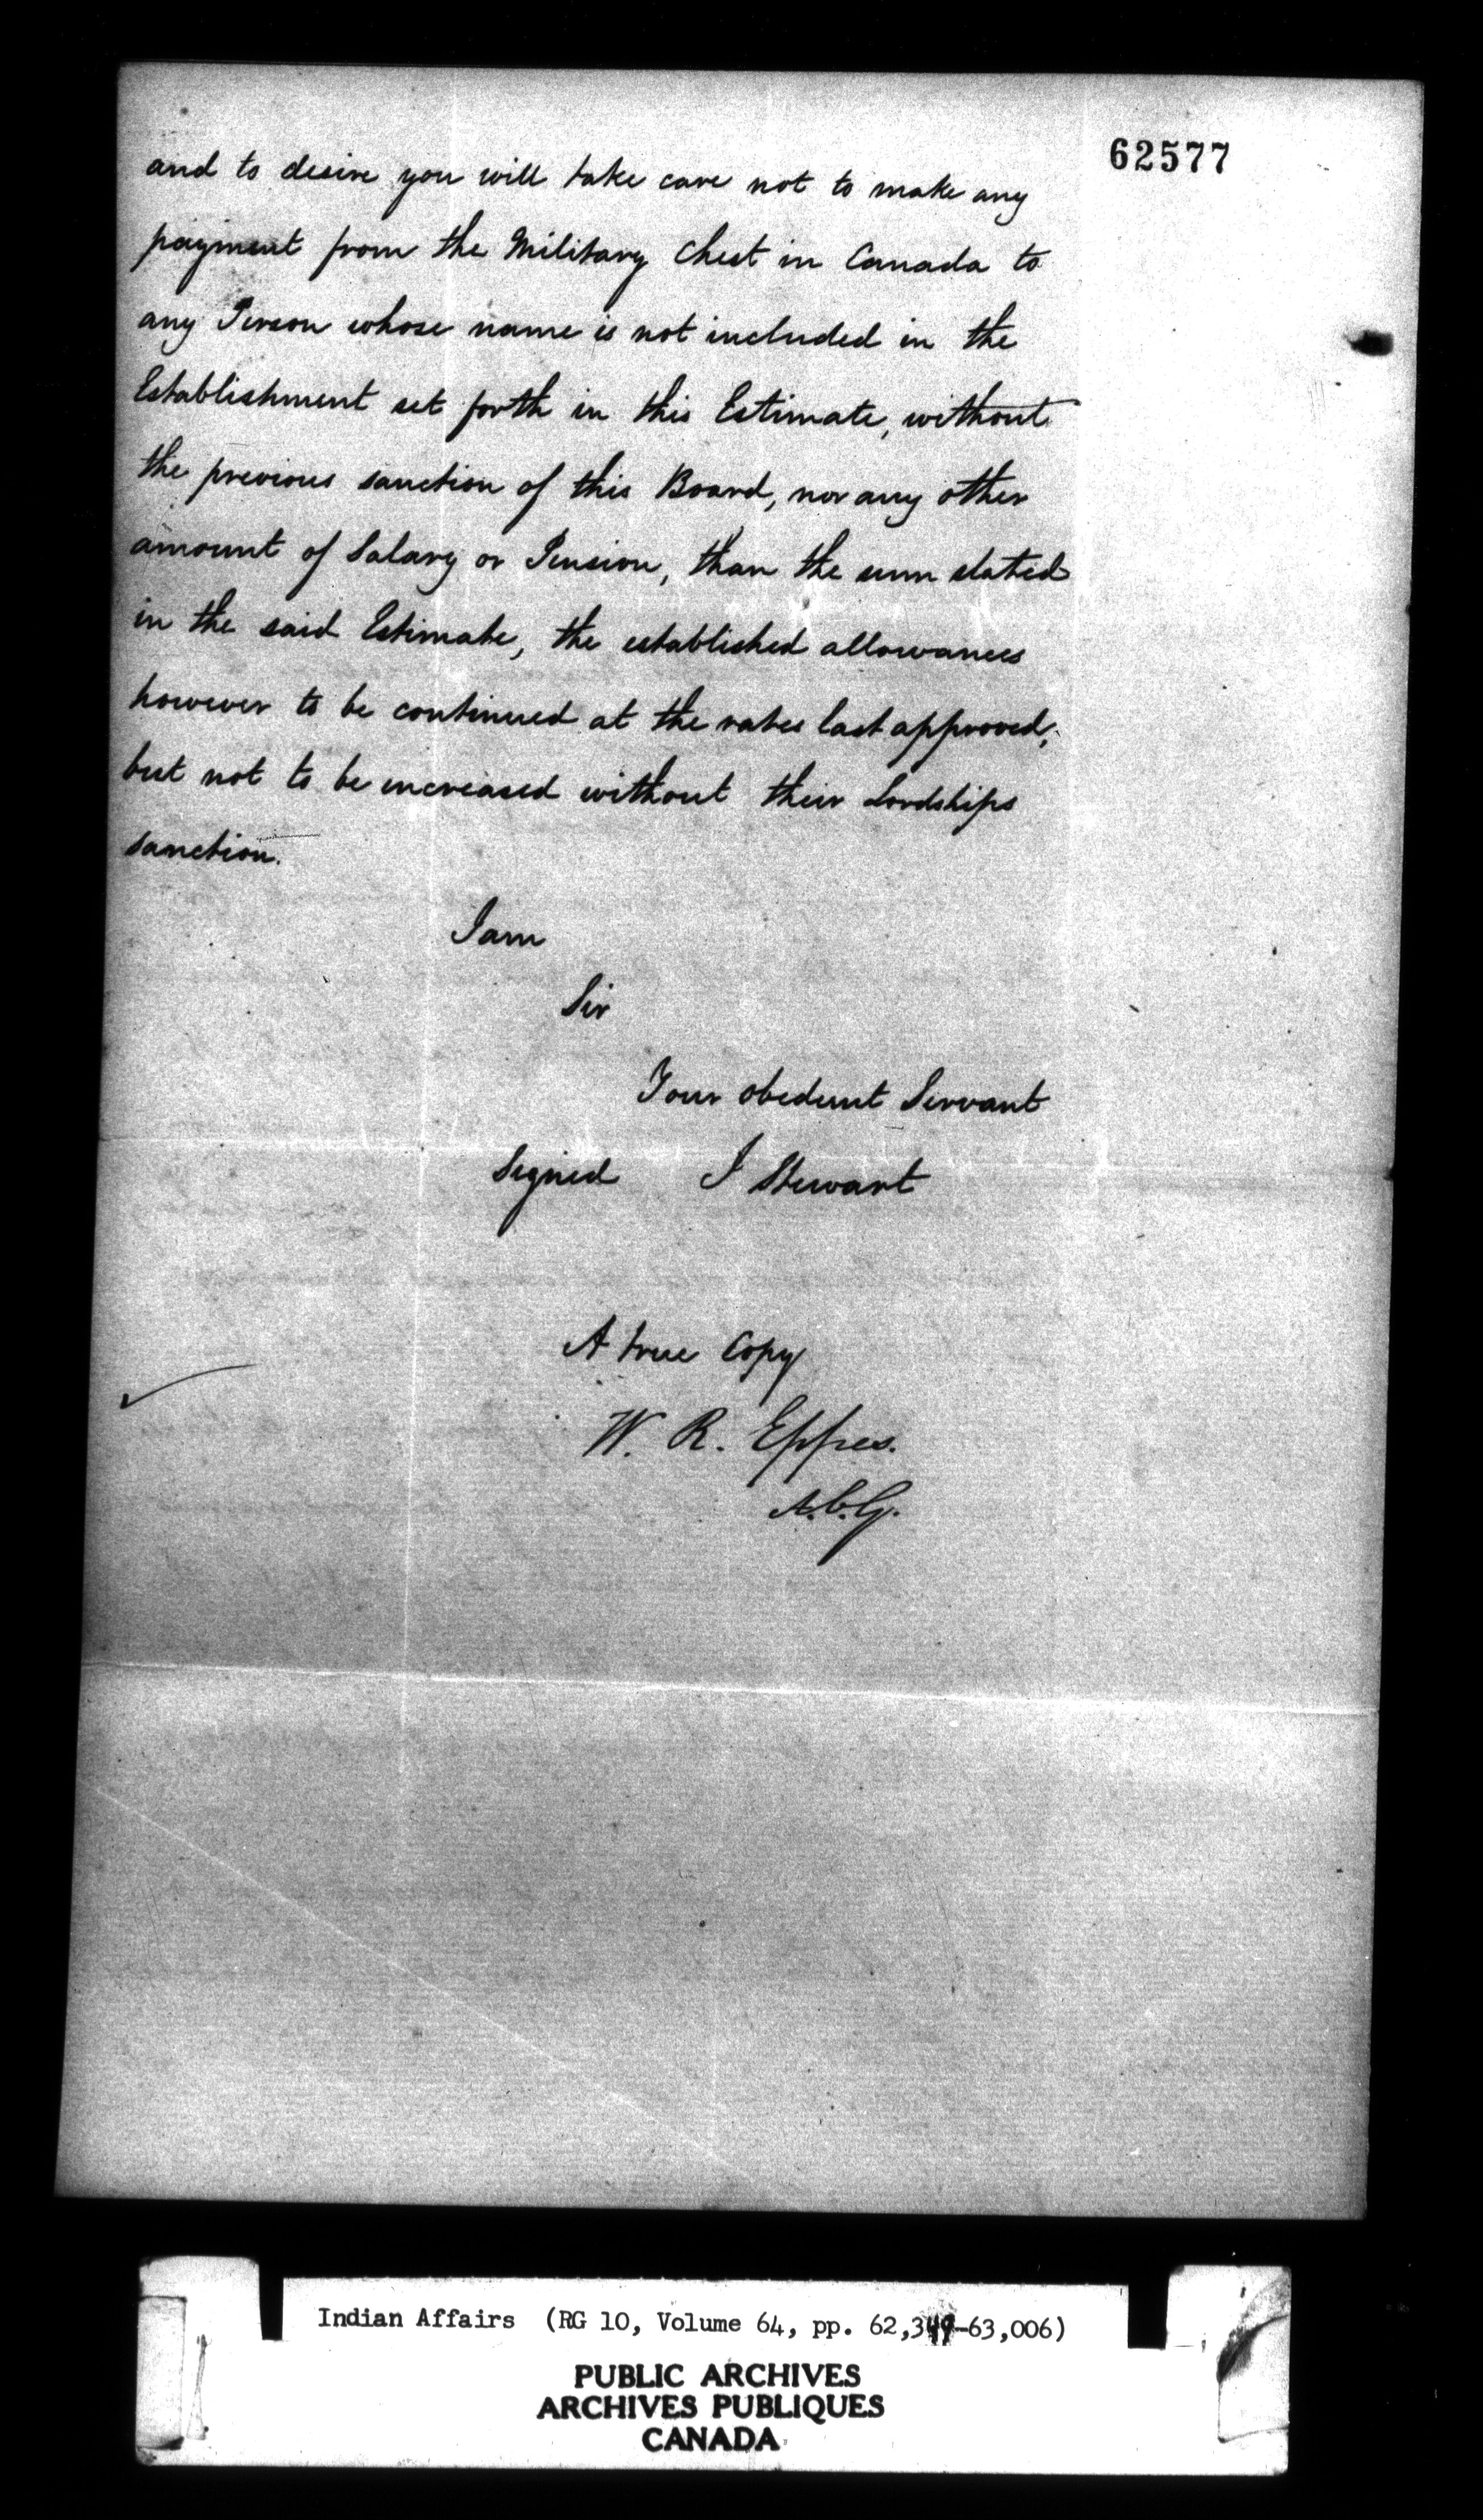 62577
and to desire you will take care not to make any
payment from the Military Chest in Canada to
any Person whose name is not included in the
Establishment set forth in this Estimate, without
the previous sanction of this Board, nor any other
amount of Salary or Pension, than the sum stated
in the said Estimate, the established allowances
however to be continued at the rates last approved,
but not to be increased without their Lordships
sanction.
I am
Sir
Your obedient Servant
Signed J Stewart
A true Copy
W. R. Eppes.
A.C.G.
Indian Affairs (RG 10, Volume 64, pp. 62,349-63,006)
PUBLIC ARCHIVES
ARCHIVES PUBLIQUES
CANADA